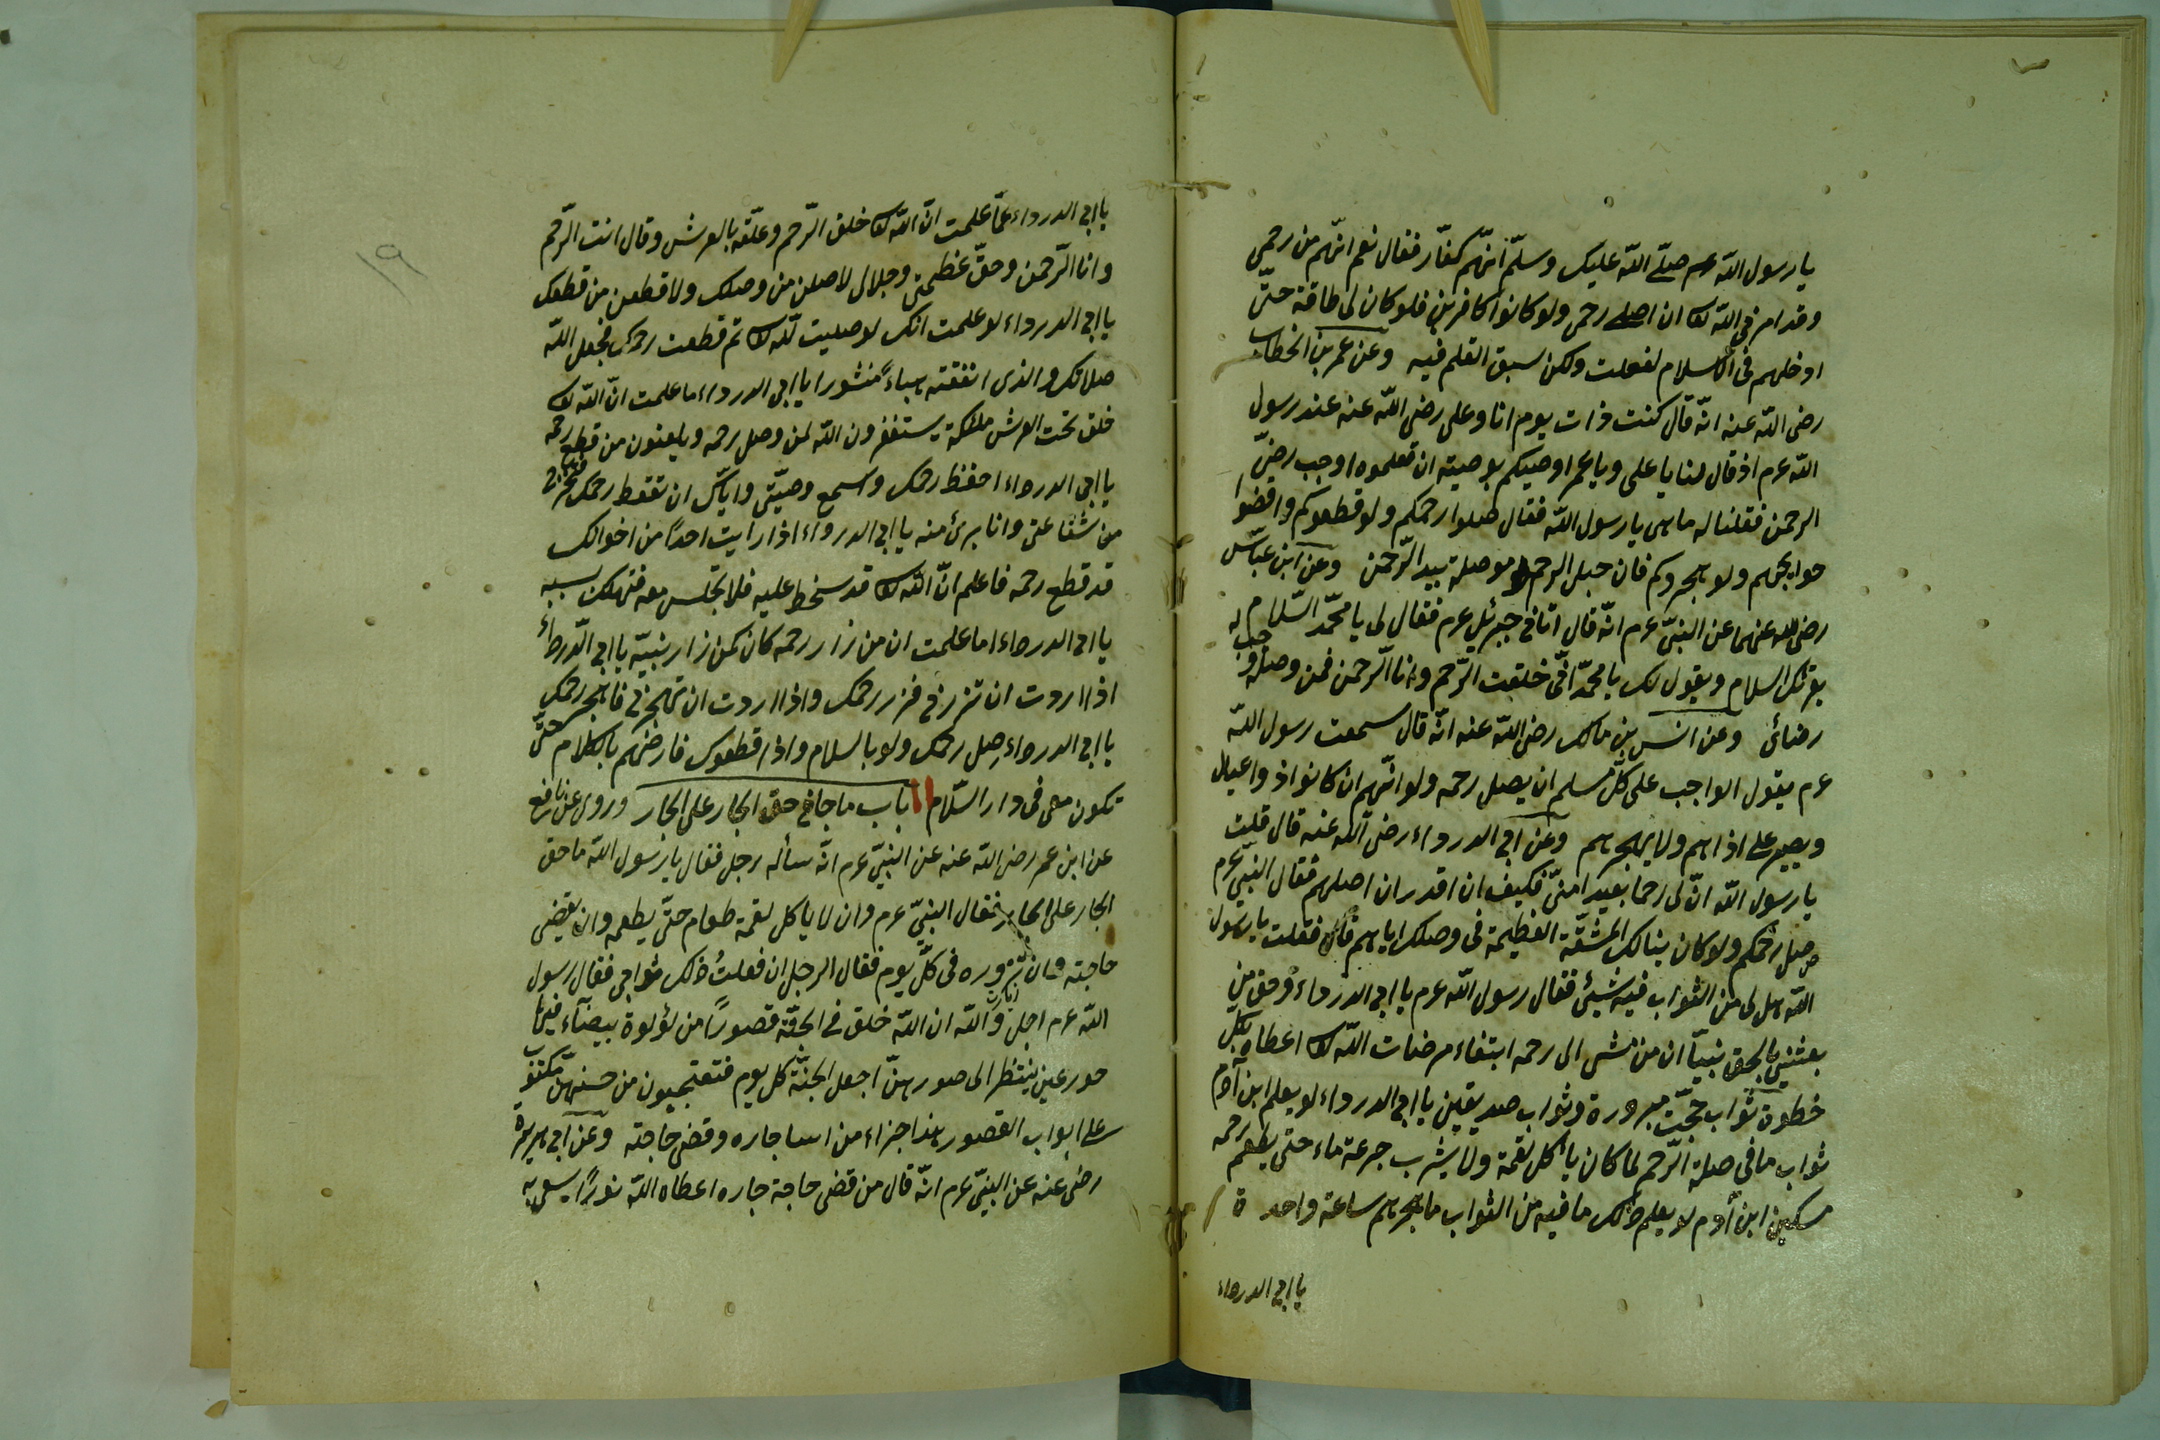 يا رسول الله صلّى الله عليك وسلّم انّهم كفّار فقال نعم انّهم من رحمي
وقد امرني الله تعا ان اصل رحمي ولو كانوا كافرين فلو كان لي طاقة حتّى
ادخلهم في الاسلام لفعلت ولكن سبق القلم فيه وعن عمر بن الخطاب
رضى الله عنه انّه قال كنت ذات يوم انا وعلى رضى الله عنه عند رسول
الله عم اذ قال لنا يا على ويا عمر اوصيكم بوصية ان تعلموه اوجب رضى
الرحمن فقلنا له ما هى يا رسول الله فقال صلوا رحمكم ولو قطعوكم واقضوا
حوايجهم ولو هجروكم فان حبل الرحم موصلة بيد الرّحمن وعن ابن عبّاس
رضى الله عنهما عن النبيّ عم انّه قال اتاني جبرئيل عم فقال لي يا محمّد السّلام
يقرئك السلام ويقول لك يا محمّد انّى خلقت الرّحم وانا الرّحمن فمن وصله وجب له
رضائى وعن انس بن مالك رضى الله عنه انّه قال سمعت رسول الله
عم يقول الواجب على كلّ مسلم ان يصل رحمه ولو انّهم ان كانوا ذو اعيال
ويصبر على اذاهم ولا يهجرهم وعن ابي الدرداء رضى الله عنه قال قلت
يا رسول الله انّ لى رحما بعيدا منّى فكيف ان اقدر ان اصلهم فقال النبيّ عم
صل رحمكم ولو كان بنالك المشقّة العظيمة في وصلك اياهم قال فقلت يا رسول
الله هل لى من الثواب فيه شيئ فقال رسول الله عم يا ابي الدرداء وحق من
بعثني بالحق نبيّا ان من مشى الى رحمه ابتغاء مرضات الله تعا اعطاه بكل
خطوة ثواب حجّة مبرورة وثواب صديقين يا ابي الدرداء لو يعلم ابن آدم
ثواب ما في صلة الرّحم لما كان ياكل لقمة ولا يشرب جرعة ماء حتى يطعم رحمه
مسكين ابن آدم لو يعلم ذلك ما فيه من الثواب ما هجرهم ساعة واحدة
يا ابي الدرداء
١٩
يا ابي الدرداء عمّا علمت انّ الله تعا خلق الرّحم وعلّقه بالعرش وقال انت الرّحم
وانا الرّحمن وحقّ عظمتى وجلالى لاصلن من وصلك ولاقطعن من قطعك
يا ابي الدرداء لو علمت انك لو صليت لله تعا ثم قطعت رحمك فجعل الله
صلاتك والذى انفقته هباءً منثورا يا ابي الدرداء ما علمت انّ الله تعا
خلق تحت العرش ملئكة يستغفرون الله لمن وصل رحمه ويلعنون من قطع رحمه
يا ابي الدرداء احفظ رحمك واسمع وصيّتى وايّاك ان تقطع رحمك
من شفاعتى وانا برئ منه يا ابي الدرداء اذا رايت احداً من اخوالك
قد قطع رحمه فاعلم انّ الله تعا قد سخط عليه فلا تجلس معه فتهلك بسببه
يا ابي الدرداء اما علمت ان من زار رحمه كان كمن زار نبيّه يا ابي الدّرداء
اذا اردت ان تزرنى فزر رحمك واذا اردت ان تهجرنى فاهجر رحمك
يا ابي الدرداء صل رحمك ولو بالسلام واذا قطعوك فارضهم بالكلام حتّى
تكون معى في دار السّلام باب ما جاء في حق الجار على الجار وروى عن نافع
عن ابن عمر رضى الله عنه عن النبيّ عم انّه سأله رجل فقال يا رسول الله ما حق
الجار على الجار فقال النبيّ عم وان لا ياكل لقمة طعام حتّى يطعمه وان يقضى
حاجته وان تزوره في كلّ يوم فقال الرجل ان فعلتُ ذلك ثوابى فقال رسول
الله عم اجل والله ان الله خلق في الجنّة قصورًا من لؤلوة بيضاء فيها
حور عين ينتظر الى صورهنّ اجعل الجنّة كل يوم فتعتجبون من حسنهنّ مكتوب
على ابواب القصور هذا جزاء من اسا جاره وقضى حاجته وعن ابي هريرة
رضى عنه عن النبيّ عم انّه قال من قضى حاجة جاره اعطاه الله نورًا يسعى به